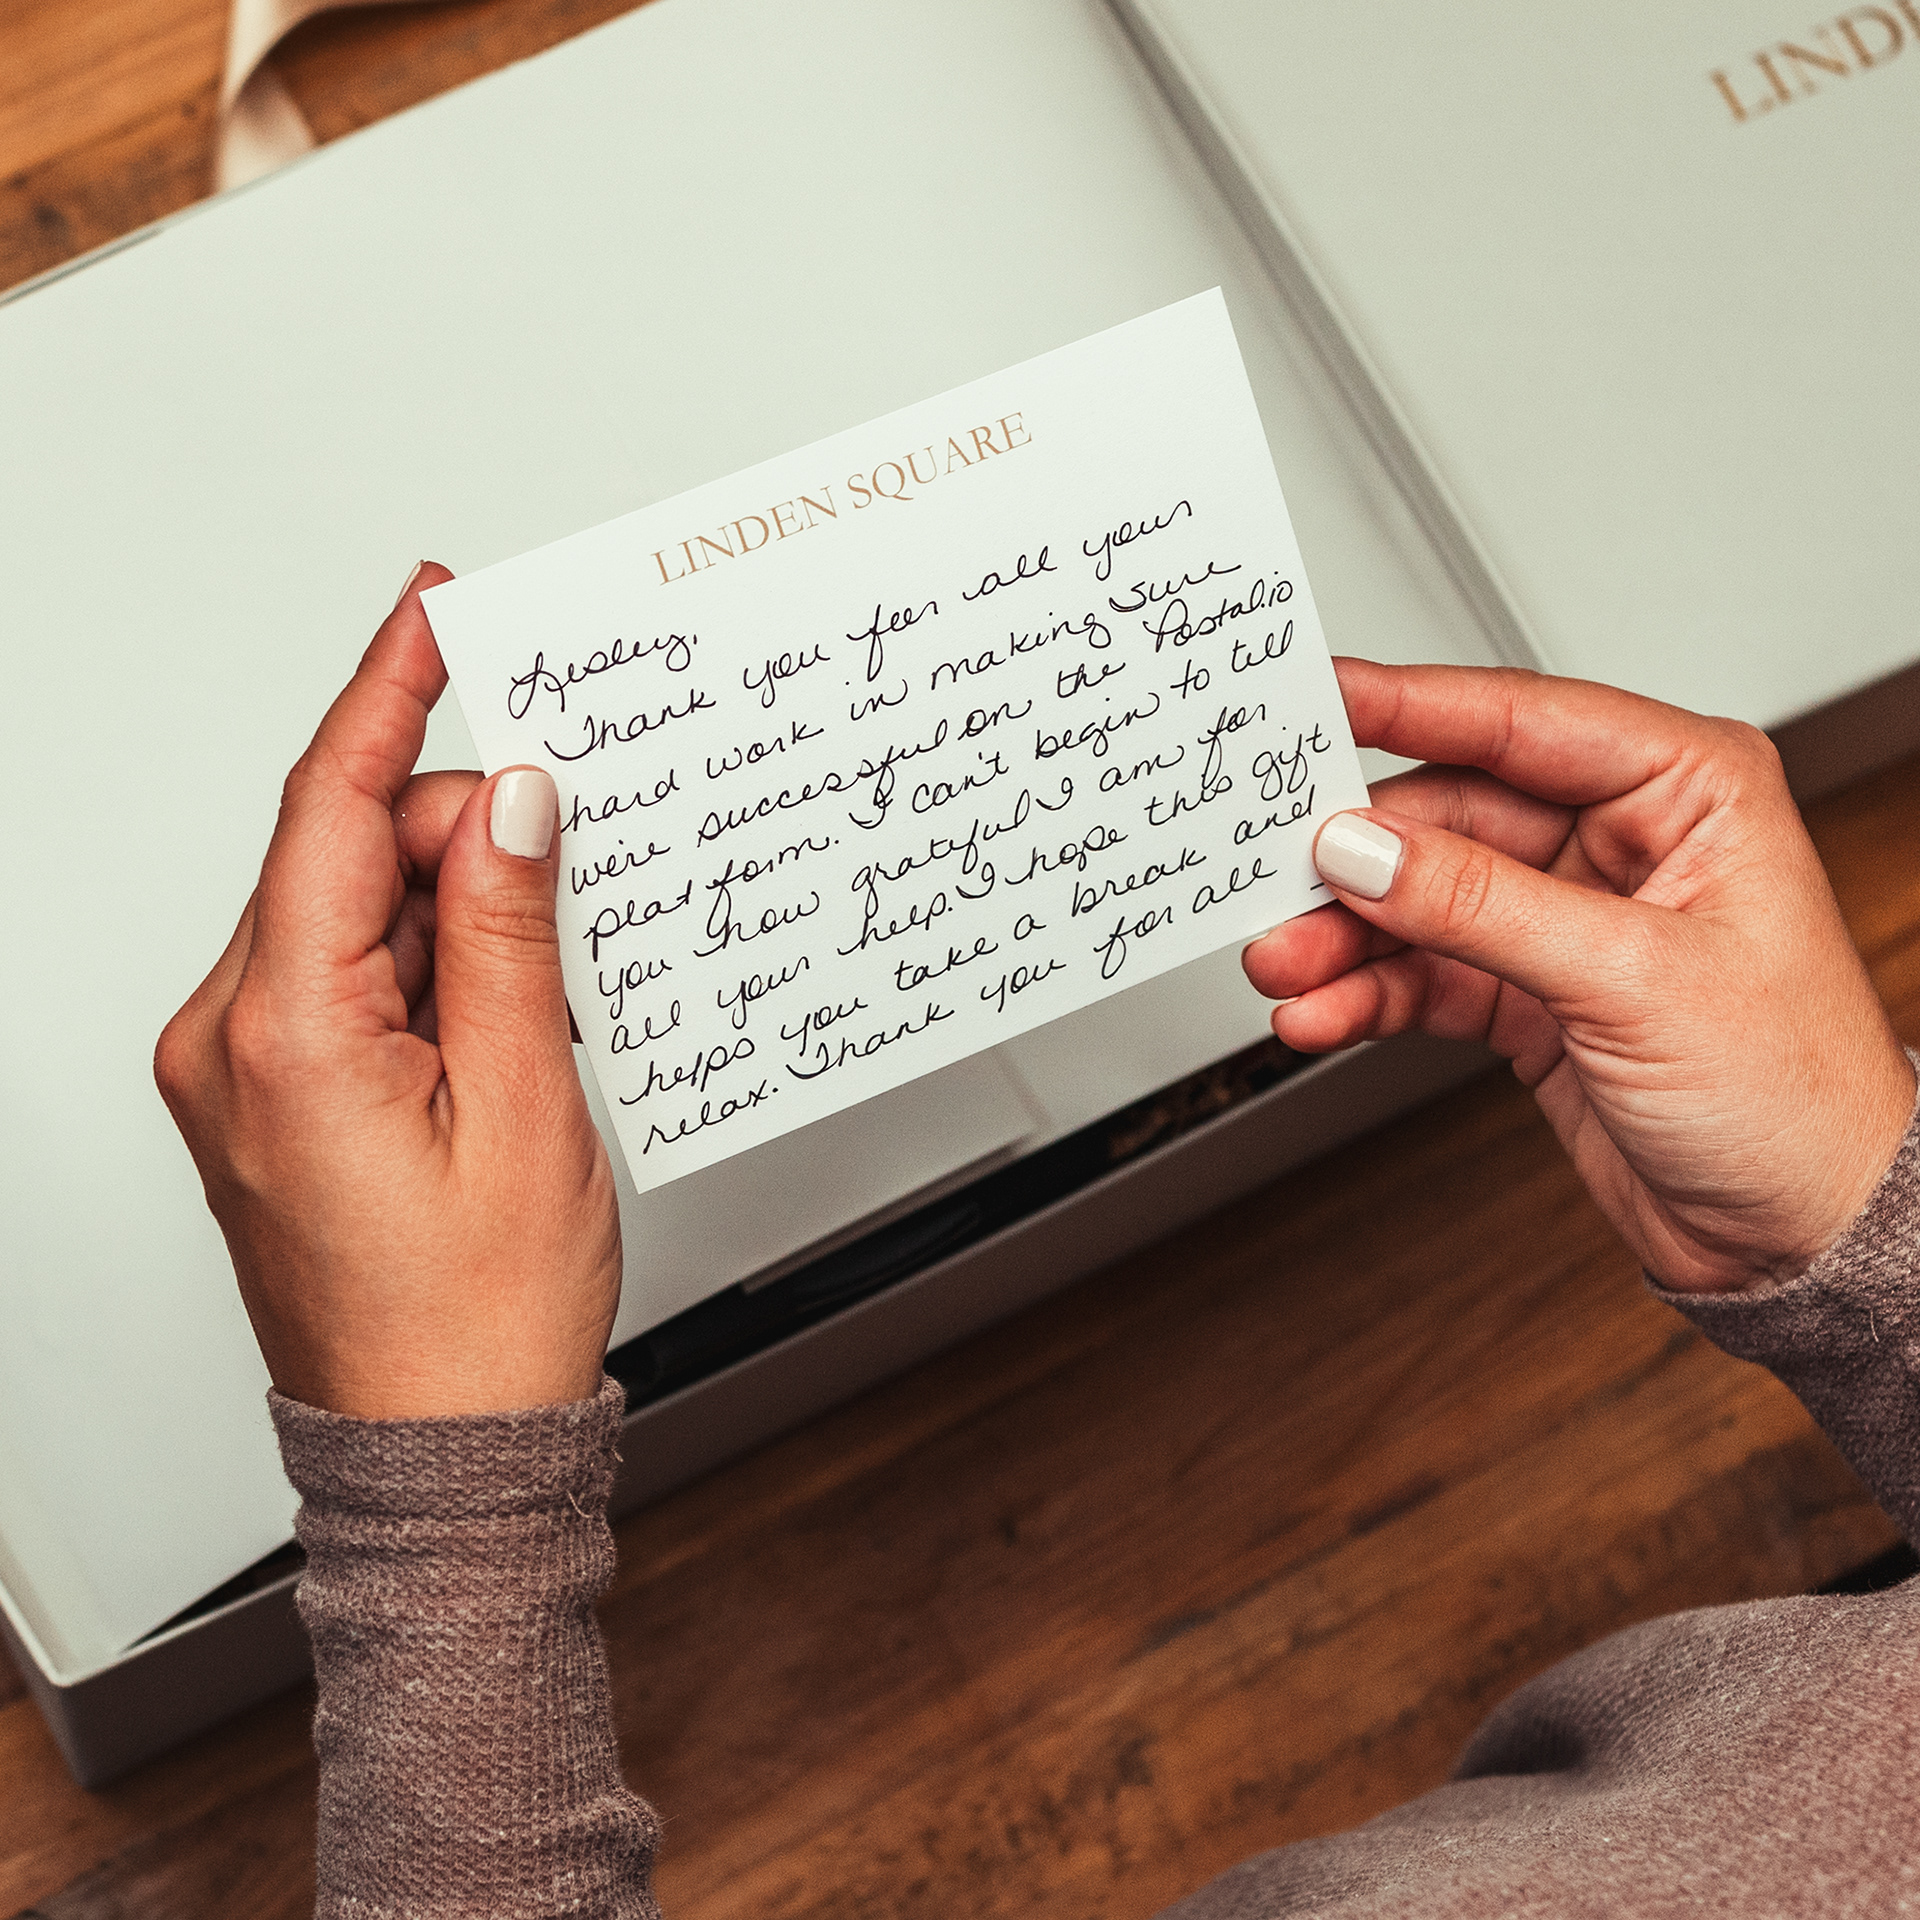 LINDE
LINDEN SQUARE
Lesley,
Thank you for all your
hard work in making sure
we're successful on the Postal.io
platform. I can't begin to tell
you how grateful I am for
all your help. I hope this gift
helps you take a break and
relax. Thank you for all